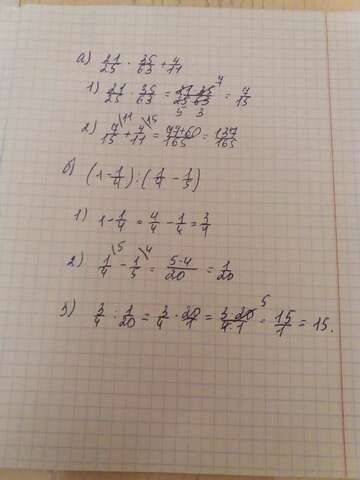 а) 21/25 · 35/63 + 4/11
1) 21/25 · 35/63 = 21·35/25·63 = 7/15
7
5 3
2) 7/15 \11 + 4/11 \15 = 77+60/165 = 137/165
б) (1-1/4):(1/4 - 1/5)
1) 1-1/4 = 4/4 - 1/4 = 3/4
2) 1/4 \5 - 1/5 \4 = 5-4/20 = 1/20
3) 3/4 : 1/20 = 3/4 · 20/1 = 3·20/4·1 5 = 15/1 = 15.